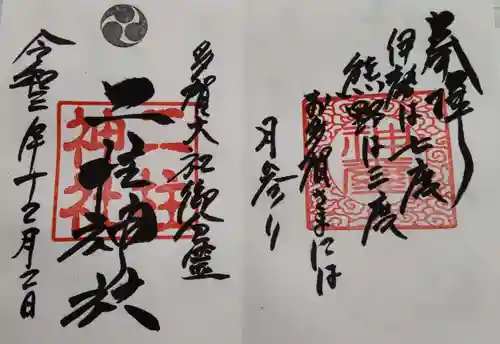 奉拝
伊勢は七度
熊野は三度
お多賀さまには
月参り
神璽
多賀大社御分霊
二柱神社
二柱神社
令和二年十二月二日